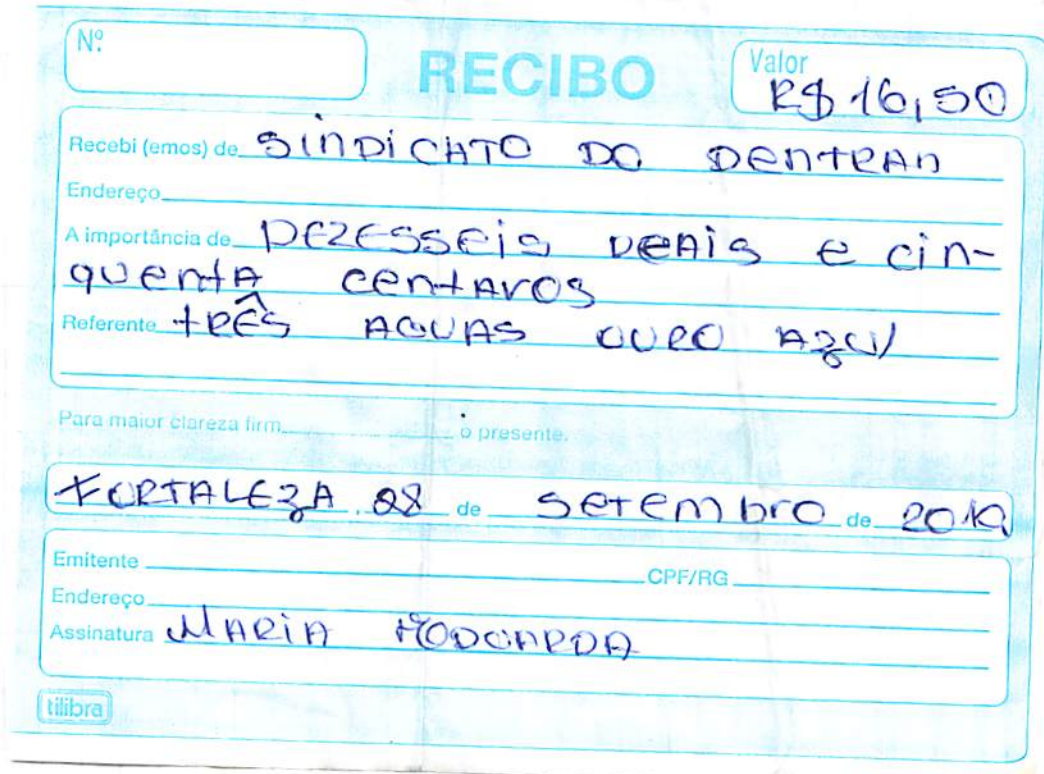 Nº
RECIBO
Valor
R$ 16,50
Recebi (emos) de SINDICATO DO DENTRAN
Endereço
A importância de DEZESSEIS REAIS e cin-
quenta centavos
Referente TRÊS AGUAS OURO AZUl
Para maior clareza firm o presente.
FORTALEZA, 28 de setembro de 2019
Emitente CPF/RG
Endereço
Assinatura MARIA
tilibra